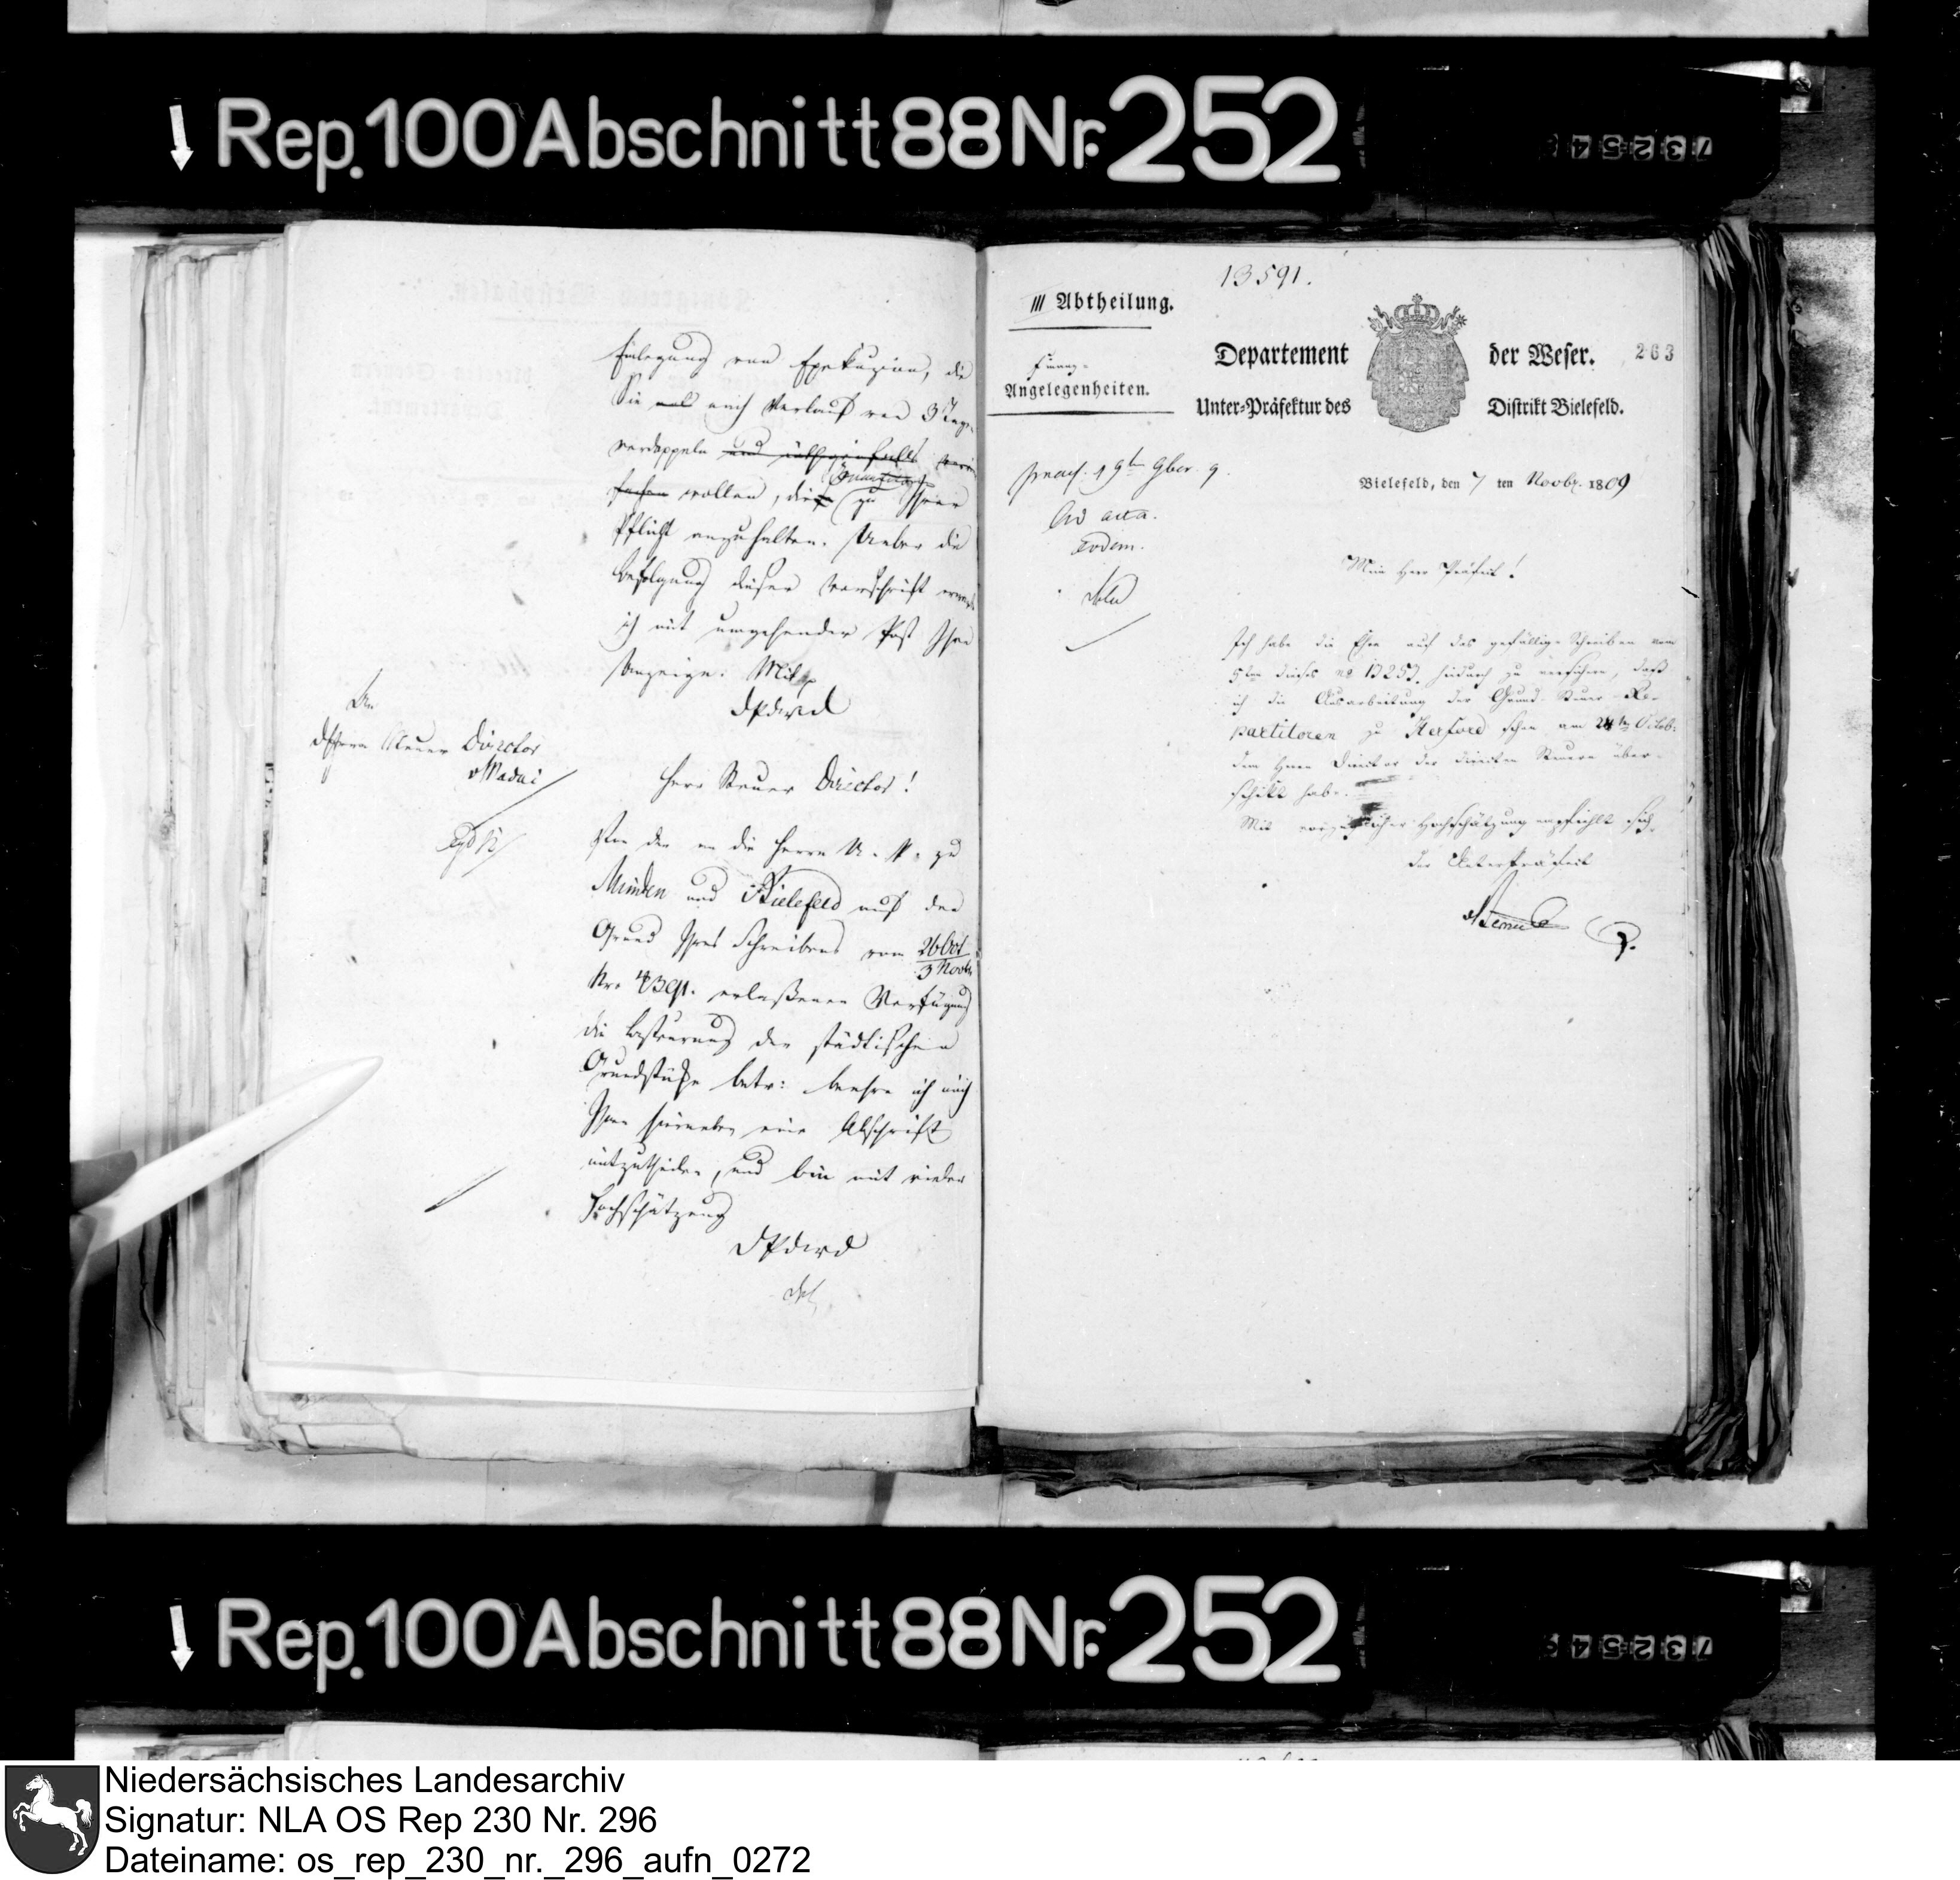 Rep. 100 Abschnitt 88 Nr. 252
73254
Einlegung von Exekuzion, die
Sie nach Verlauf von 3 Tagen
verdoppeln und
wollen, die zu Ihrer
Pflicht anzuhalten. Ueber die
Befolgung dieser Vorschrift erwarte
ich mit umgehender Post Ihre
Anzeige. Mit
DPdwd
An
den Herrn Steuer Director
v Madai
Herr Steuer Director!
Von der an die Herrn U. P. zu
Minden und Bielefeld auf den
Grund Ihres Schreibens vom 26 Oct
3 Novbr
Nr. erlaßenen Verfügung
die Besteurung der städtischen
Grundstücke betr: beehre ich mich
Ihnen hierneben eine Abschrift
mitzutheilen, und bin mit vieler
Hochschätzung
DPdwd
13591.
III Abtheilung.
Finanz-
Angelegenheiten.
Departement der Weser.
263
Unter-Präfektur des Distrikt Bielefeld.
praes. 19ten 9ber 9.
Bielefeld, den 7 ten Novbr. 1809
Ad acta.
eodem.
Mein Herr Präfect!
Ich habe die Ehre auf das gefällige Schreiben vom
5ten dieses no 13253. hiedurch zu versichern, daß
ich die Ausarbeitung der Grund-Steuer-Re-
partitoren zu Herford schon am 24ten Octob:
dem Herrn Director der directen Steuern über-
schikt habe.
Mit vorzüglicher Hochschätzung empfiehlt sich
der Unterpräfect
Rep. 100 Abschnitt 88 Nr. 252
73254
Niedersächsisches Landesarchiv
Signatur: NLA OS Rep 230 Nr. 296
Dateiname: os_rep_230_nr._296_aufn_0272